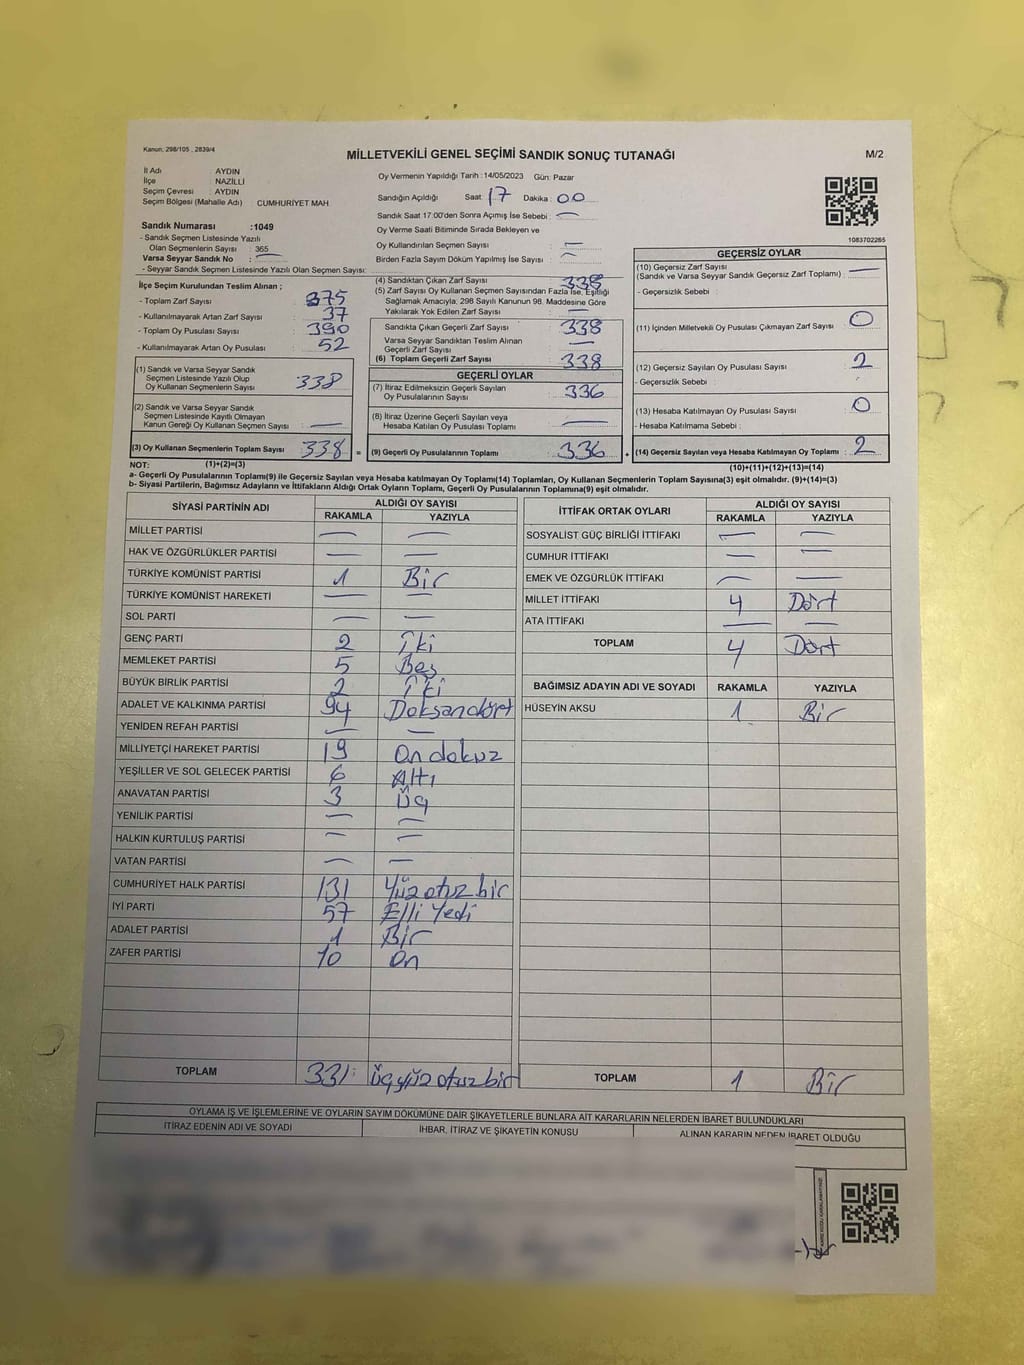 Kanun; 298/105 , 2839/4
MİLLETVEKİLİ GENEL SEÇİMİ SANDIK SONUÇ TUTANAĞI
M/2
İl Adı : AYDIN
İlçe : NAZİLLİ
Seçim Çevresi : AYDIN
Seçim Bölgesi (Mahalle Adı) CUMHURİYET MAH.
Oy Vermenin Yapıldığı Tarih : 14/05/2023 Gün: Pazar
Sandığın Açıldığı Saat : 17 Dakika : 00
Sandık Saat 17:00'den Sonra Açımış İse Sebebi : —
Oy Verme Saati Bitiminde Sırada Bekleyen ve
Oy Kullandırılan Seçmen Sayısı : —
Birden Fazla Sayım Döküm Yapılmış İse Sayısı : —
1083702265
Sandık Numarası :1049
- Sandık Seçmen Listesinde Yazılı
Olan Seçmenlerin Sayısı : 365
Varsa Seyyar Sandık No : —
- Seyyar Sandık Seçmen Listesinde Yazılı Olan Seçmen Sayısı:
İlçe Seçim Kurulundan Teslim Alınan ;
- Toplam Zarf Sayısı : 375
- Kullanılmayarak Artan Zarf Sayısı : 37
- Toplam Oy Pusulası Sayısı : 390
- Kullanılmayarak Artan Oy Pusulası : 52
(1) Sandık ve Varsa Seyyar Sandık
Seçmen Listesinde Yazılı Olup
Oy Kullanan Seçmenlerin Sayısı : 338
(2) Sandık ve Varsa Seyyar Sandık
Seçmen Listesinde Kayıtlı Olmayan
Kanun Gereği Oy Kullanan Seçmen Sayısı : —
(3) Oy Kullanan Seçmenlerin Toplam Sayısı : 338
(4) Sandıktan Çıkan Zarf Sayısı : 338
(5) Zarf Sayısı Oy Kullanan Seçmen Sayısından Fazla İse, Eşitliği
Sağlamak Amacıyla; 298 Sayılı Kanunun 98. Maddesine Göre
Yakılarak Yok Edilen Zarf Sayısı : —
Sandıkta Çıkan Geçerli Zarf Sayısı : 338
Varsa Seyyar Sandıktan Teslim Alınan
Geçerli Zarf Sayısı : —
(6) Toplam Geçerli Zarf Sayısı : 338
GEÇERLİ OYLAR
(7) İtiraz Edilmeksizin Geçerli Sayılan
Oy Pusulalarının Sayısı : 336
(8) İtiraz Üzerine Geçerli Sayılan veya
Hesaba Katılan Oy Pusulası Toplamı : —
= (9) Geçerli Oy Pusulalarının Toplamı : 336
GEÇERSİZ OYLAR
(10) Geçersiz Zarf Sayısı
(Sandık ve Varsa Seyyar Sandık Geçersiz Zarf Toplamı) : —
- Geçersizlik Sebebi :
(11) İçinden Milletvekili Oy Pusulası Çıkmayan Zarf Sayısı : 0
(12) Geçersiz Sayılan Oy Pusulası Sayısı : 2
- Geçersizlik Sebebi :
(13) Hesaba Katılmayan Oy Pusulası Sayısı : 0
- Hesaba Katılmama Sebebi :
+ (14) Geçersiz Sayılan veya Hesaba Katılmayan Oy Toplamı : 2
NOT: (1)+(2)=(3)
(10)+(11)+(12)+(13)=(14)
a- Geçerli Oy Pusulalarının Toplamı(9) ile Geçersiz Sayılan veya Hesaba katılmayan Oy Toplamı(14) Toplamları, Oy Kullanan Seçmenlerin Toplam Sayısına(3) eşit olmalıdır. (9)+(14)=(3)
b- Siyasi Partilerin, Bağımsız Adayların ve İttifakların Aldığı Ortak Oyların Toplamı, Geçerli Oy Pusulalarının Toplamına(9) eşit olmalıdır.
SİYASİ PARTİNİN ADI ALDIĞI OY SAYISI
RAKAMLA YAZIYLA
MİLLET PARTİSİ — —
HAK VE ÖZGÜRLÜKLER PARTİSİ — —
TÜRKİYE KOMÜNİST PARTİSİ 1 Bir
TÜRKİYE KOMÜNİST HAREKETİ — —
SOL PARTİ — —
GENÇ PARTİ 2 İki
MEMLEKET PARTİSİ 5 Beş
BÜYÜK BİRLİK PARTİSİ 2 İki
ADALET VE KALKINMA PARTİSİ 94 Doksandört
YENİDEN REFAH PARTİSİ — —
MİLLİYETÇİ HAREKET PARTİSİ 19 On dokuz
YEŞİLLER VE SOL GELECEK PARTİSİ 6 Altı
ANAVATAN PARTİSİ 3 Üç
YENİLİK PARTİSİ — —
HALKIN KURTULUŞ PARTİSİ — —
VATAN PARTİSİ — —
CUMHURİYET HALK PARTİSİ 131 Yüz otuz bir
İYİ PARTİ 57 Elli Yedi
ADALET PARTİSİ 1 Bir
ZAFER PARTİSİ 10 On
TOPLAM 331 Üçyüz otuz bir
İTTİFAK ORTAK OYLARI ALDIĞI OY SAYISI
RAKAMLA YAZIYLA
SOSYALİST GÜÇ BİRLİĞİ İTTİFAKI — —
CUMHUR İTTİFAKI — —
EMEK VE ÖZGÜRLÜK İTTİFAKI — —
MİLLET İTTİFAKI 4 Dört
ATA İTTİFAKI — —
TOPLAM 4 Dört
BAĞIMSIZ ADAYIN ADI VE SOYADI RAKAMLA YAZIYLA
HÜSEYİN AKSU 1 Bir
TOPLAM 1 Bir
OYLAMA İŞ VE İŞLEMLERİNE VE OYLARIN SAYIM DÖKÜMÜNE DAİR ŞİKAYETLERLE BUNLARA AİT KARARLARIN NELERDEN İBARET BULUNDUKLARI
İTİRAZ EDENİN ADI VE SOYADI İHBAR, İTİRAZ VE ŞİKAYETİN KONUSU ALINAN KARARIN NEDEN İBARET OLDUĞU